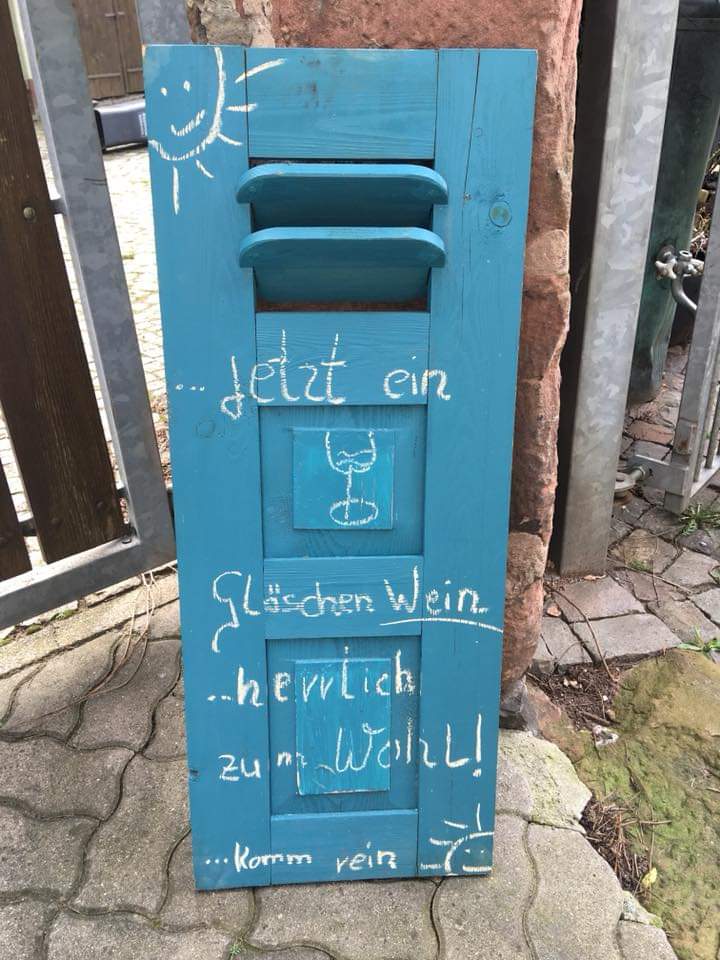 ... Jetzt ein
Gläschen Wein
..herrlich
zum Wohl!
...komm rein